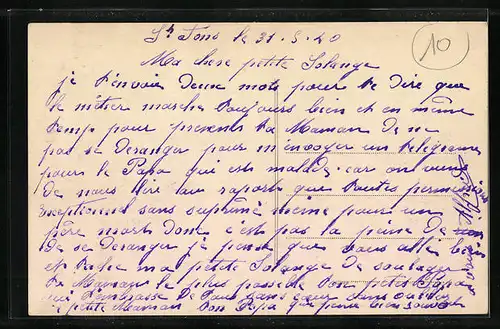 St fons le 31-5-40
10
Ma chere petite Solange
je t'envoie deux mots pour te dire que
le métier marche toujours bien et en même
temp pour prevenir ta Maman de ne
pas se deranger pour m'envoyer un telegramme
pour le Papa qui est malde. car on vien
de nous lire au raport que toutes permi
exceptionnel sans suprimé meme pour un
père mort donc c'est pas la peine de
de se deranger je pense que vous allé bien
et tache ma petite Solange de soulager
ta Maman le plus possible ton petit Papa
qui t'embrasse de tout sans coeur sans oublier
la petite Maman ton Papa que pense bien souvent